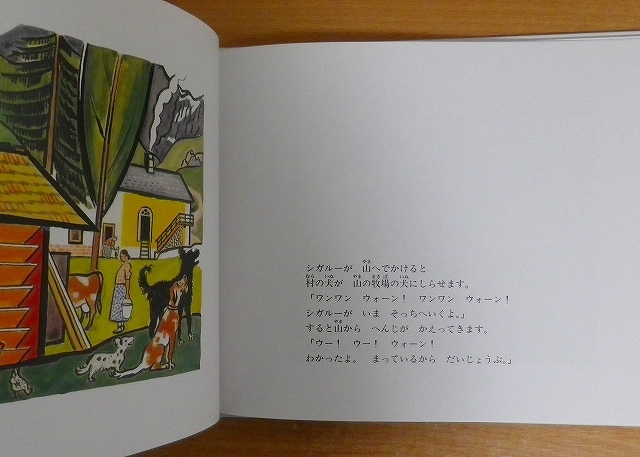 シガルーが　山へでかけると
村の犬が　山の牧場の犬にしらせます。
「ワンワン　ウォーン！　ワンワン　ウォーン！
シガルーが　いま　そっちへいくよ。」
すると山から　へんじが　かえってきます。
「ウー！　ウー！　ウォーン！
わかったよ。　まっているから　だいじょうぶ。」